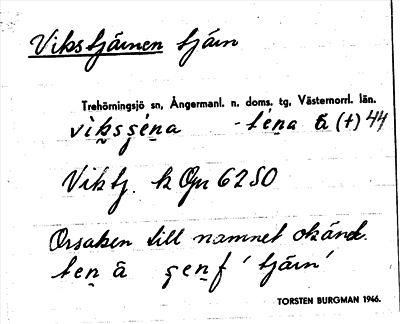 Vikstjärnen tjärn
Trehörningsjö sn, Ångermanl. n. doms. tg, Västernorrl. län.
vik̬sşén̠a - tén̠a (+) 44
Viktj. k Gn 6280
Orsaken till namnet okänd.
ten̠ şen̠ f 'tjärn'
TORSTEN BURGMAN 1946.